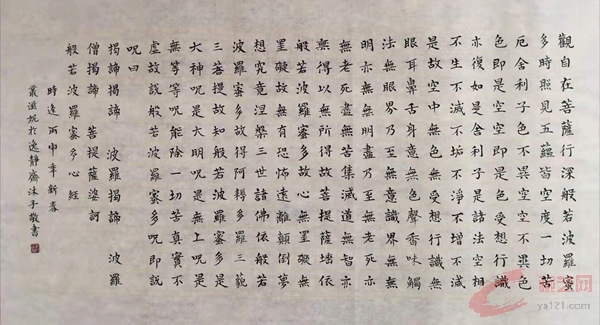 觀自在菩薩行深般若波羅蜜
多時照見五蘊皆空度一切苦
厄舍利子色不異空空不異色
色即是空空即是色受想行識
亦復如是舍利子是諸法空相
不生不滅不垢不淨不增不減
是故空中無色無受想行識無
眼耳鼻舌身意無色聲香味觸
法無眼界乃至無意識界無無
明亦無無明盡乃至無老死亦
無老死盡無苦集滅道無智亦
無得以無所得故菩提薩埵依
般若波羅蜜多故心無罣礙無
罣礙故無有恐怖遠離顛倒夢
想究竟涅槃三世諸佛依般若
波羅蜜多故得阿耨多羅三藐
三菩提故知般若波羅蜜多是
大神呪是大明呪是無上呪是
無等等呪能除一切苦真實不
虛故說般若波羅蜜多呪即說
呪曰
揭諦揭諦 波羅揭諦 波羅
僧揭諦 菩提薩婆訶
般若波羅蜜多心經
時逢丙申年新春
於逸靜齋沐手敬書
ys121.com